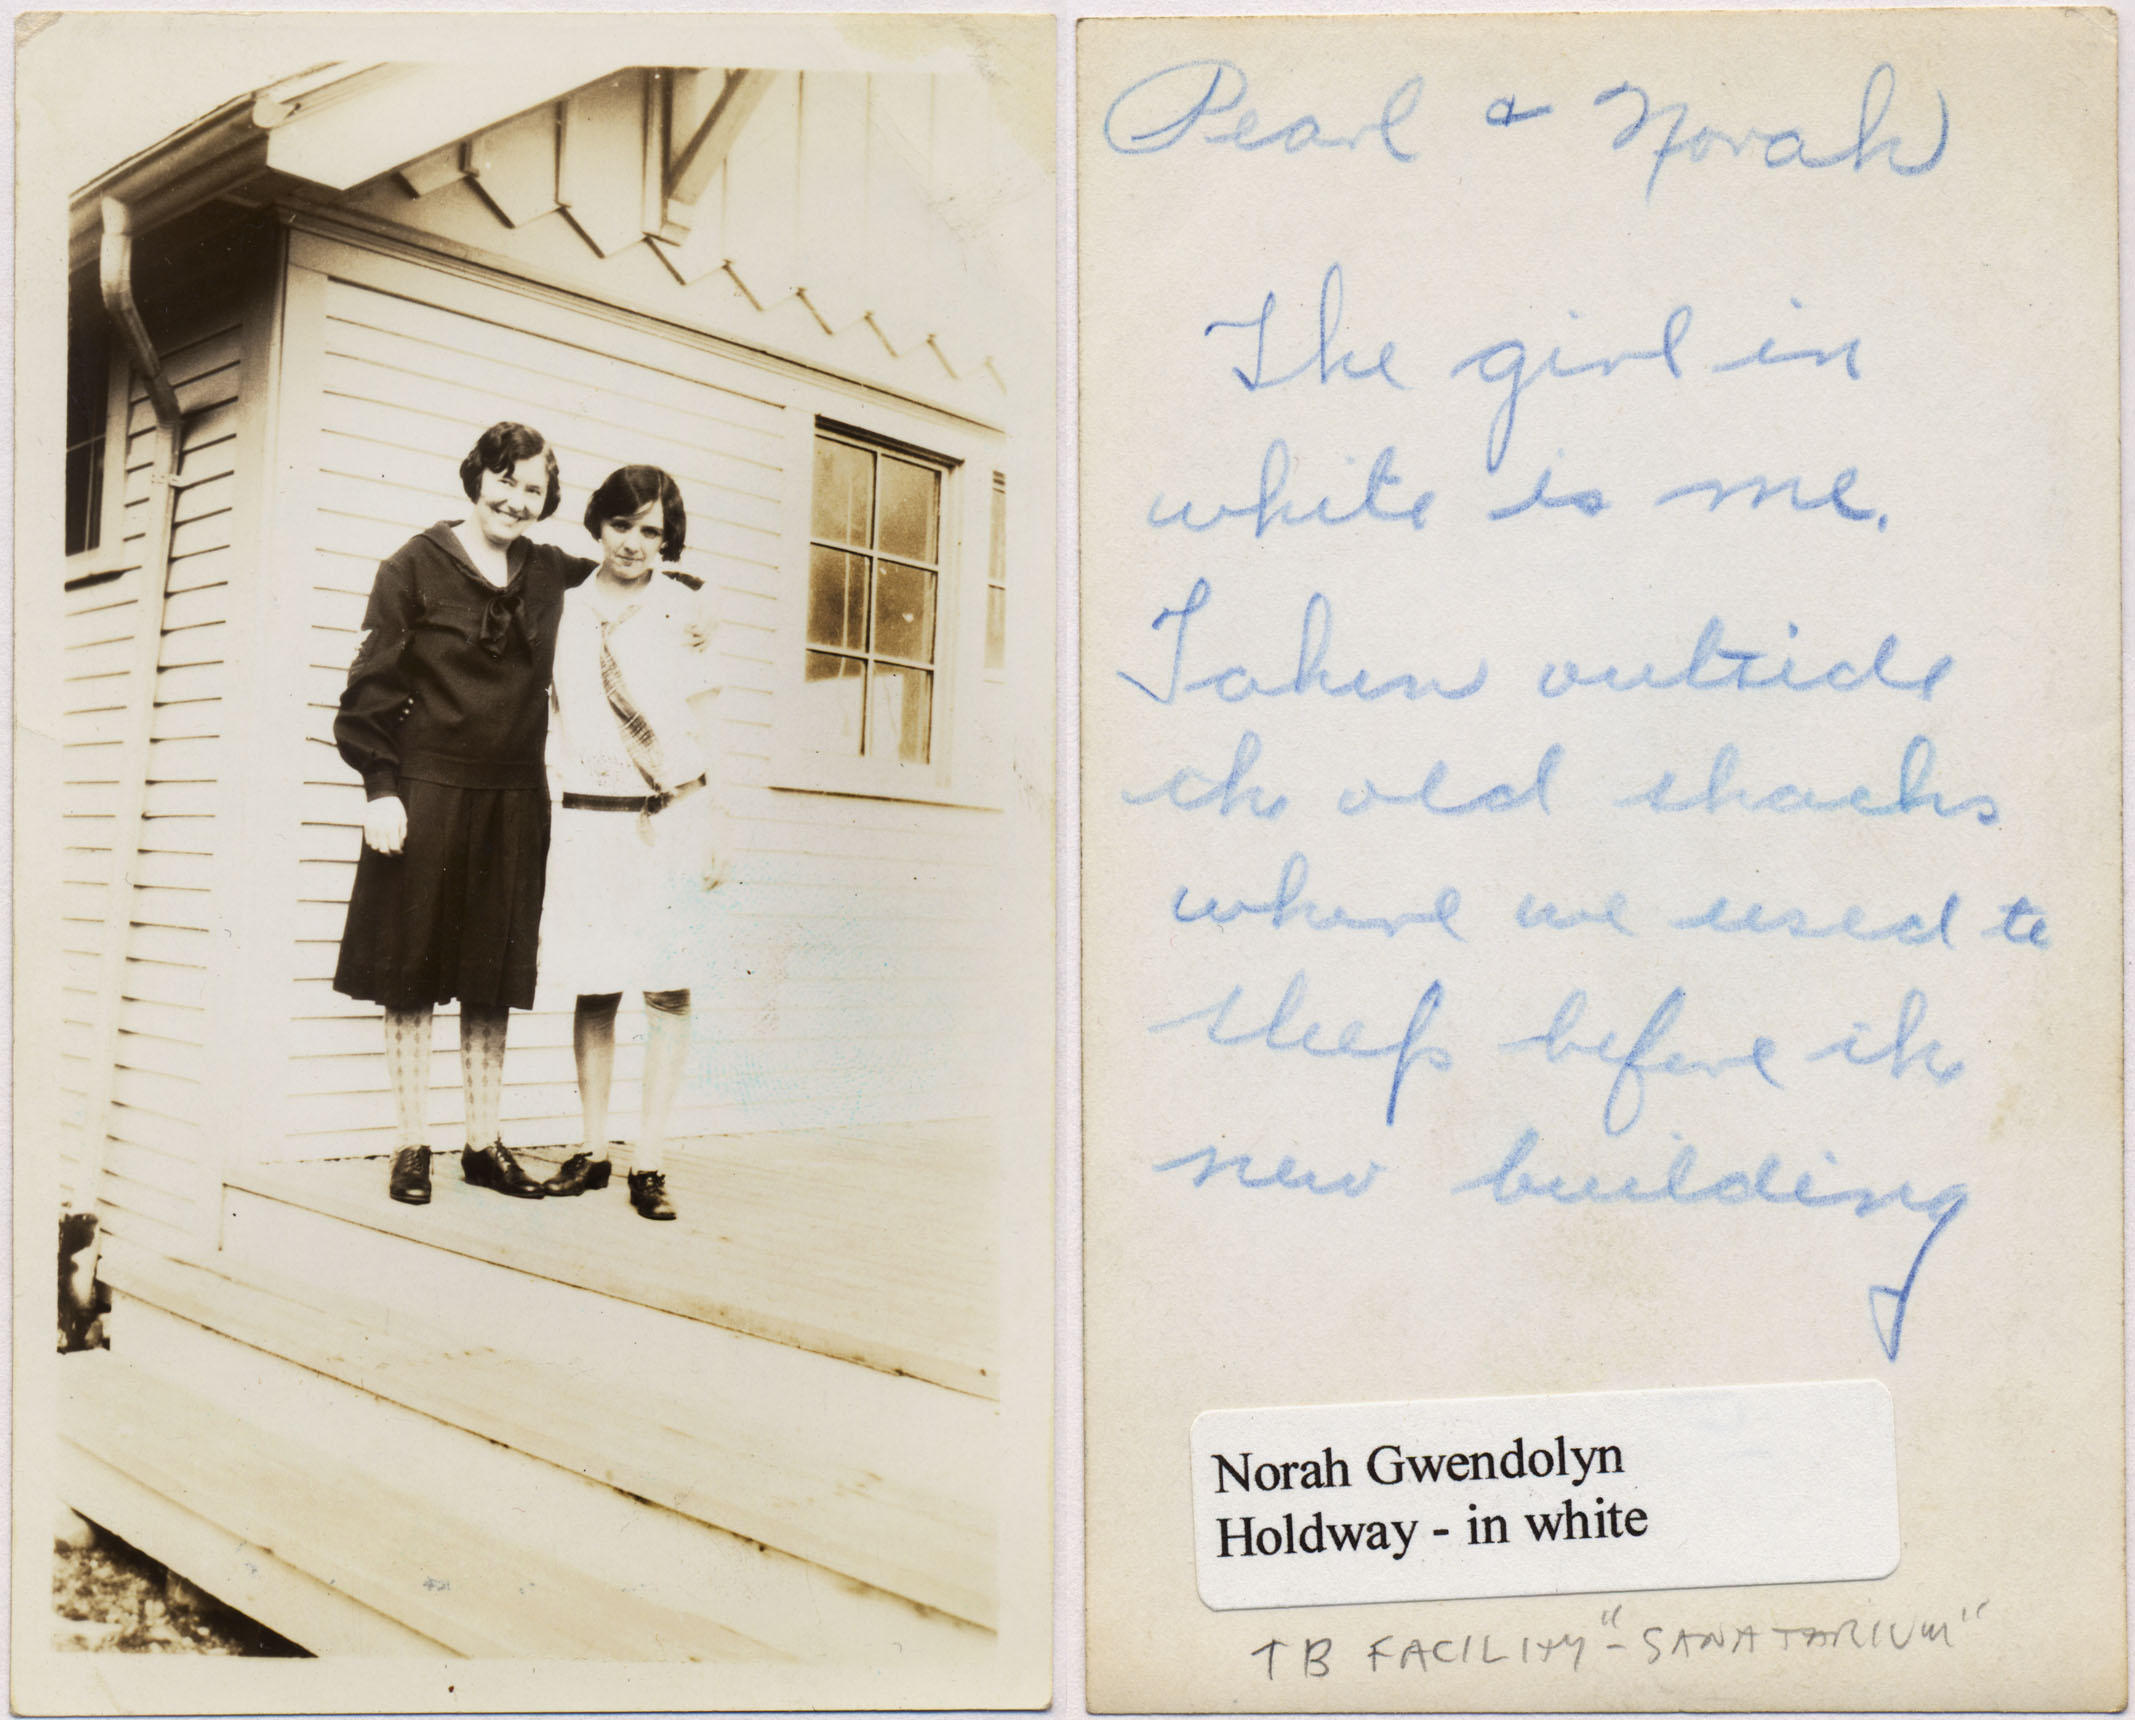 Pearl & Norah
The girl in
white is me.
Taken outside
the old shacks
where we used to
sleep before the
new building
Norah Gwendolyn
Holdway - in white
TB FACILITY "-SANATARIUM"